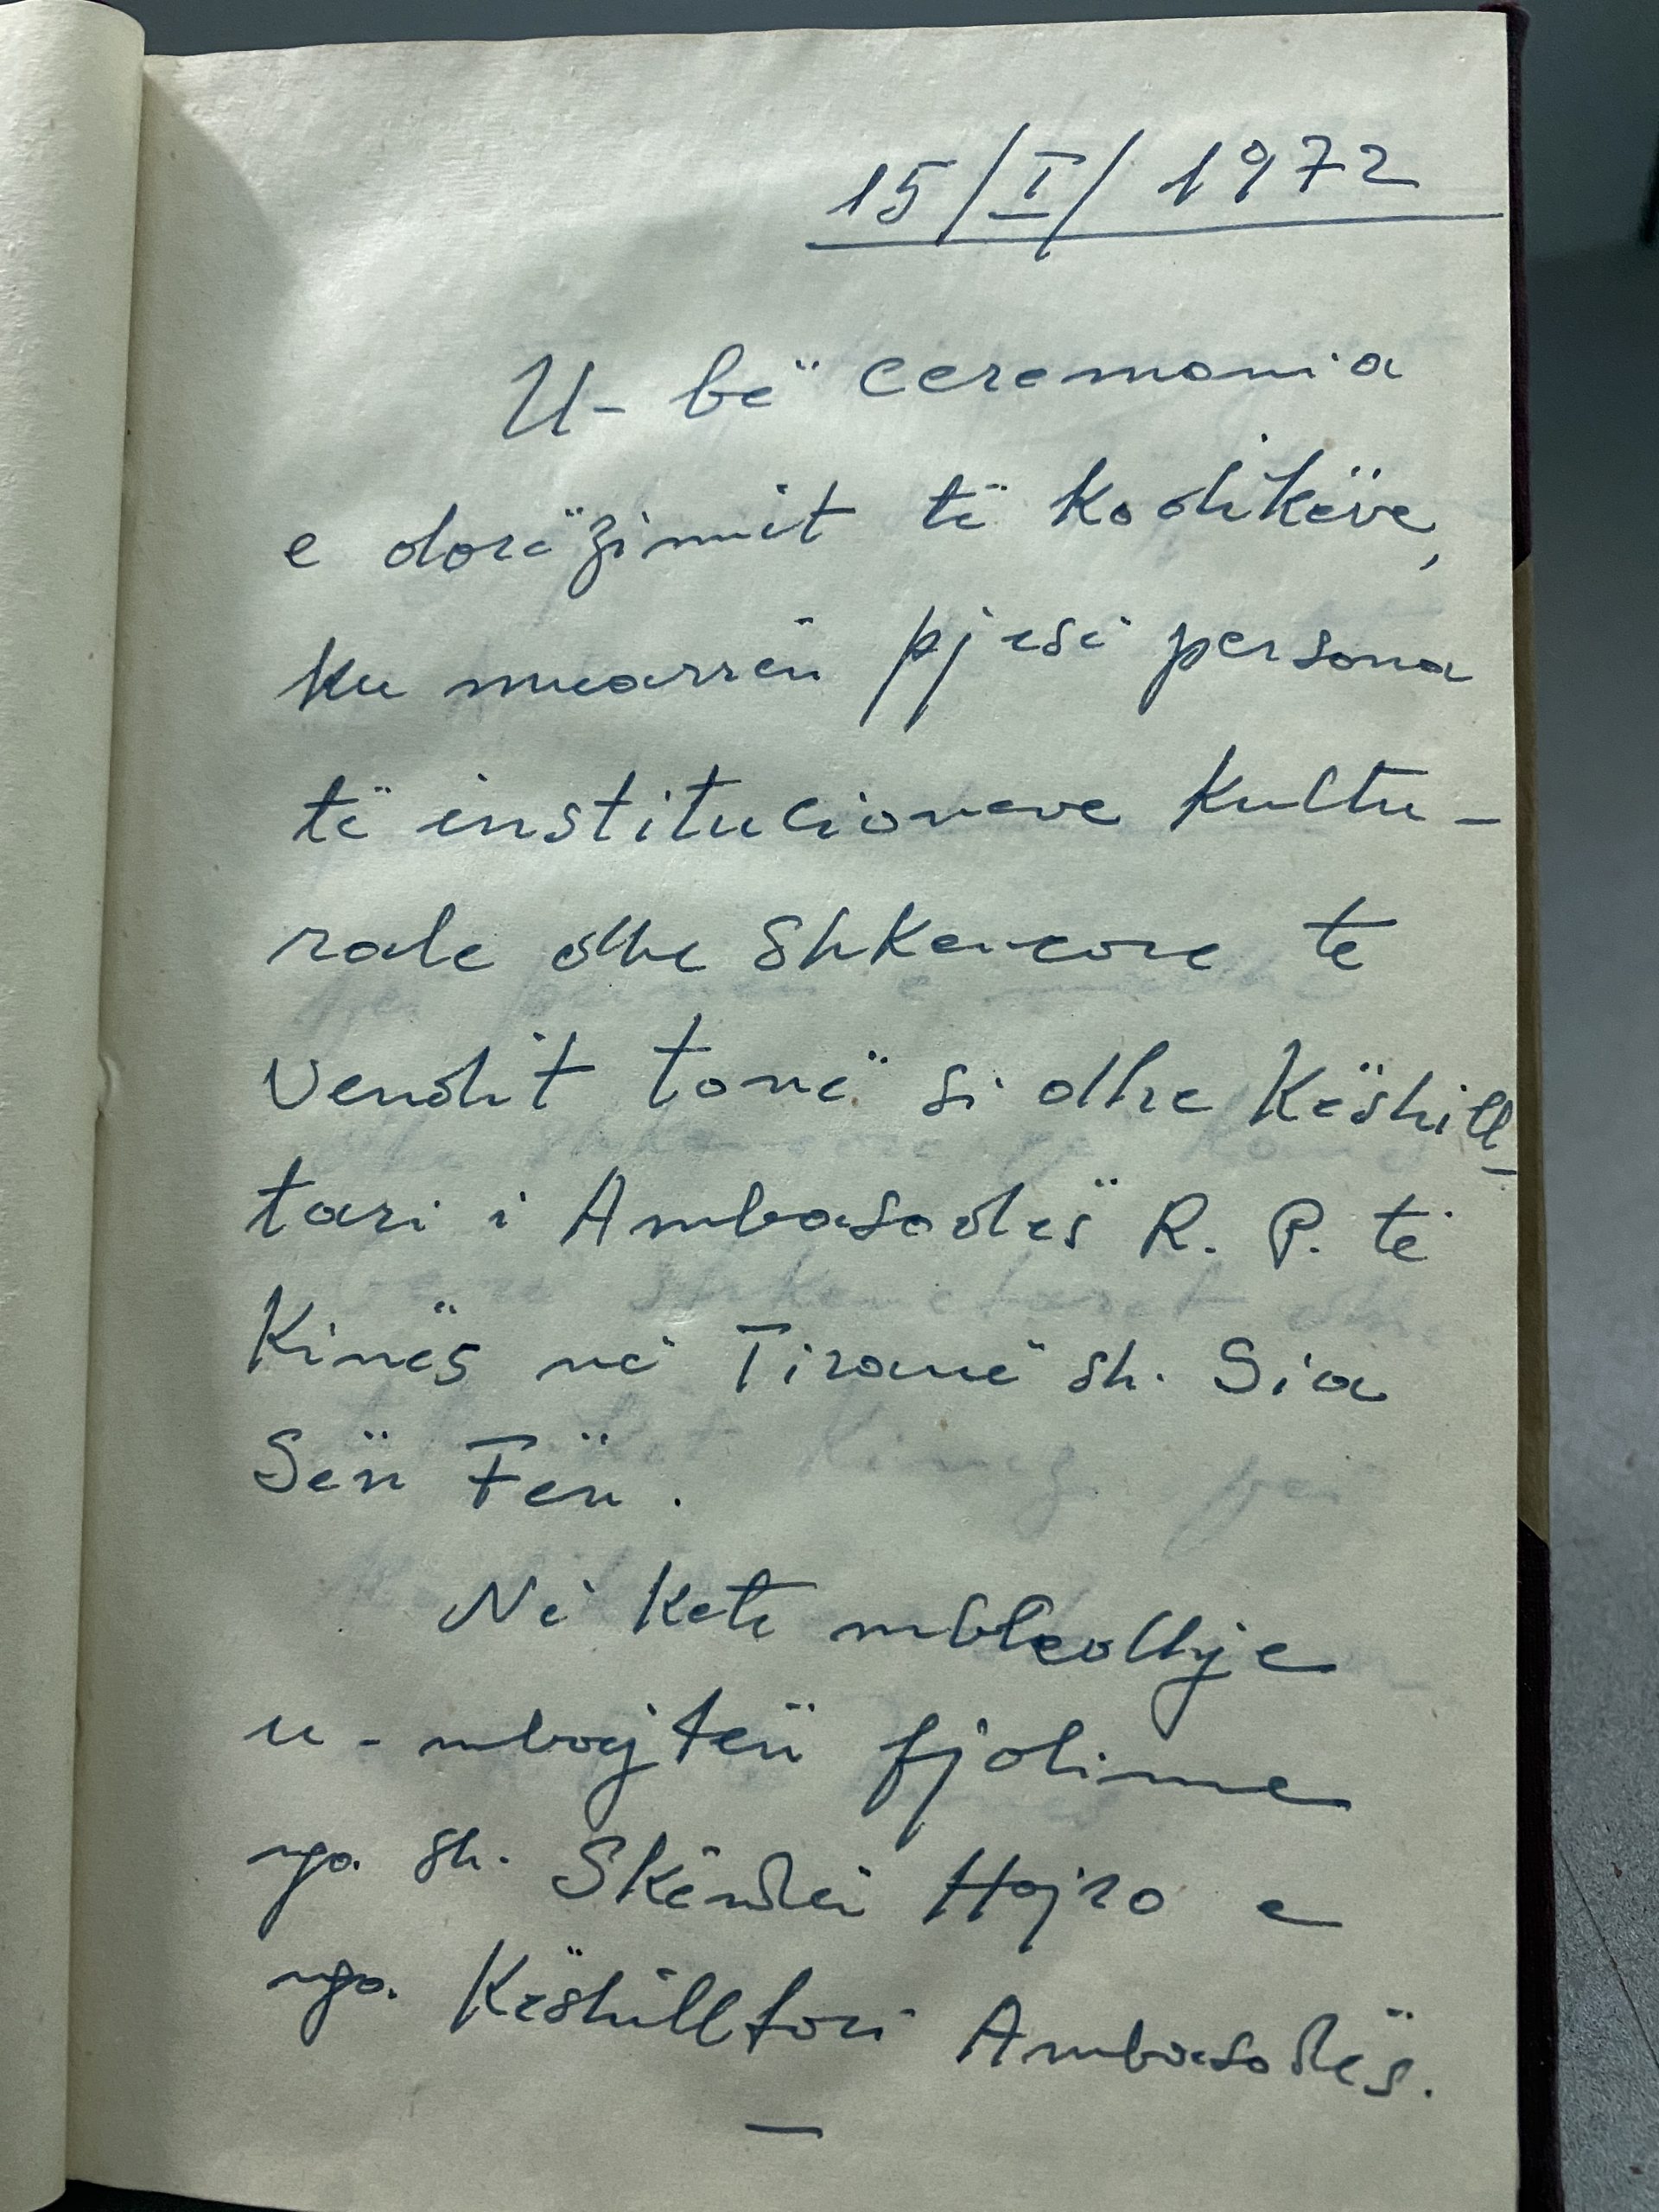 15/I/1972
U-bë ceremonia
e dorëzimit të kodikëve,
ku muarrën pjesë persona
të institucioneve kultu-
rale dhe shkencore te
vendit tonë si dhe Këshill-
tari i Ambasadës R. P. të
Kinës në Tiranë sh. Sia
Sën Fën.
Në ketë mbledhje
u-mbajtën fjalime
nga sh. Skënder Hajro e
nga Këshilltari Ambasadës.